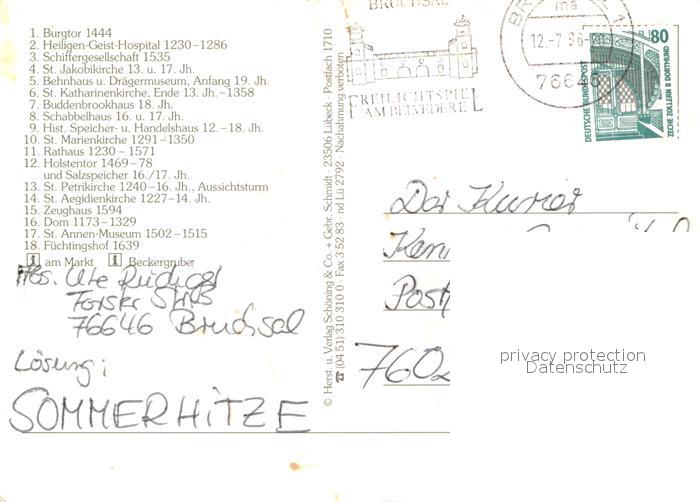 1. Burgtor 1444
2. Heiligen-Geist-Hospital 1230–1286
3. Schiffergesellschaft 1535
4. St. Jakobikirche 13. u. 17. Jh.
5. Behnhaus u. Drägermuseum, Anfang 19. Jh.
6. St. Katharinenkirche, Ende 13. Jh.–1358
7. Buddenbrookhaus 18. Jh.
8. Schabbelhaus 16. u. 17. Jh.
9. Hist. Speicher- u. Handelshaus 12.–18. Jh.
10. St. Marienkirche 1291–1350
11. Rathaus 1230–1571
12. Holstentor 1469–78
und Salzspeicher 16./17. Jh.
13. St. Petrikirche 1240–16. Jh., Aussichtsturm
14. St. Aegidienkirche 1227–14. Jh.
15. Zeughaus 1594
16. Dom 1173–1329
17. St. Annen-Museum 1502–1515
18. Füchtingshof 1639
i am Markt i Beckergrube
Abs. Ute
76646 Bruchsal
Lösung:
SOMMERHITZE
© Herst. u. Verlag Schöning & Co. + Gebr. Schmidt · 23506 Lübeck · Postfach 1710
☎ (04 51) 310 310 0 · Fax 3 52 83 · nd Lü 2792 · Nachahmung verboten
BRUCHSAL
FREILICHTSPIELE
AM BELVEDERE
BR 1
ma
12.-7.96
766
80
DEUTSCHE BUNDESPOST
ZECHE ZOLLERN II DORTMUND
Der Kurier
Ken
Post
7602
privacy protection
Datenschutz